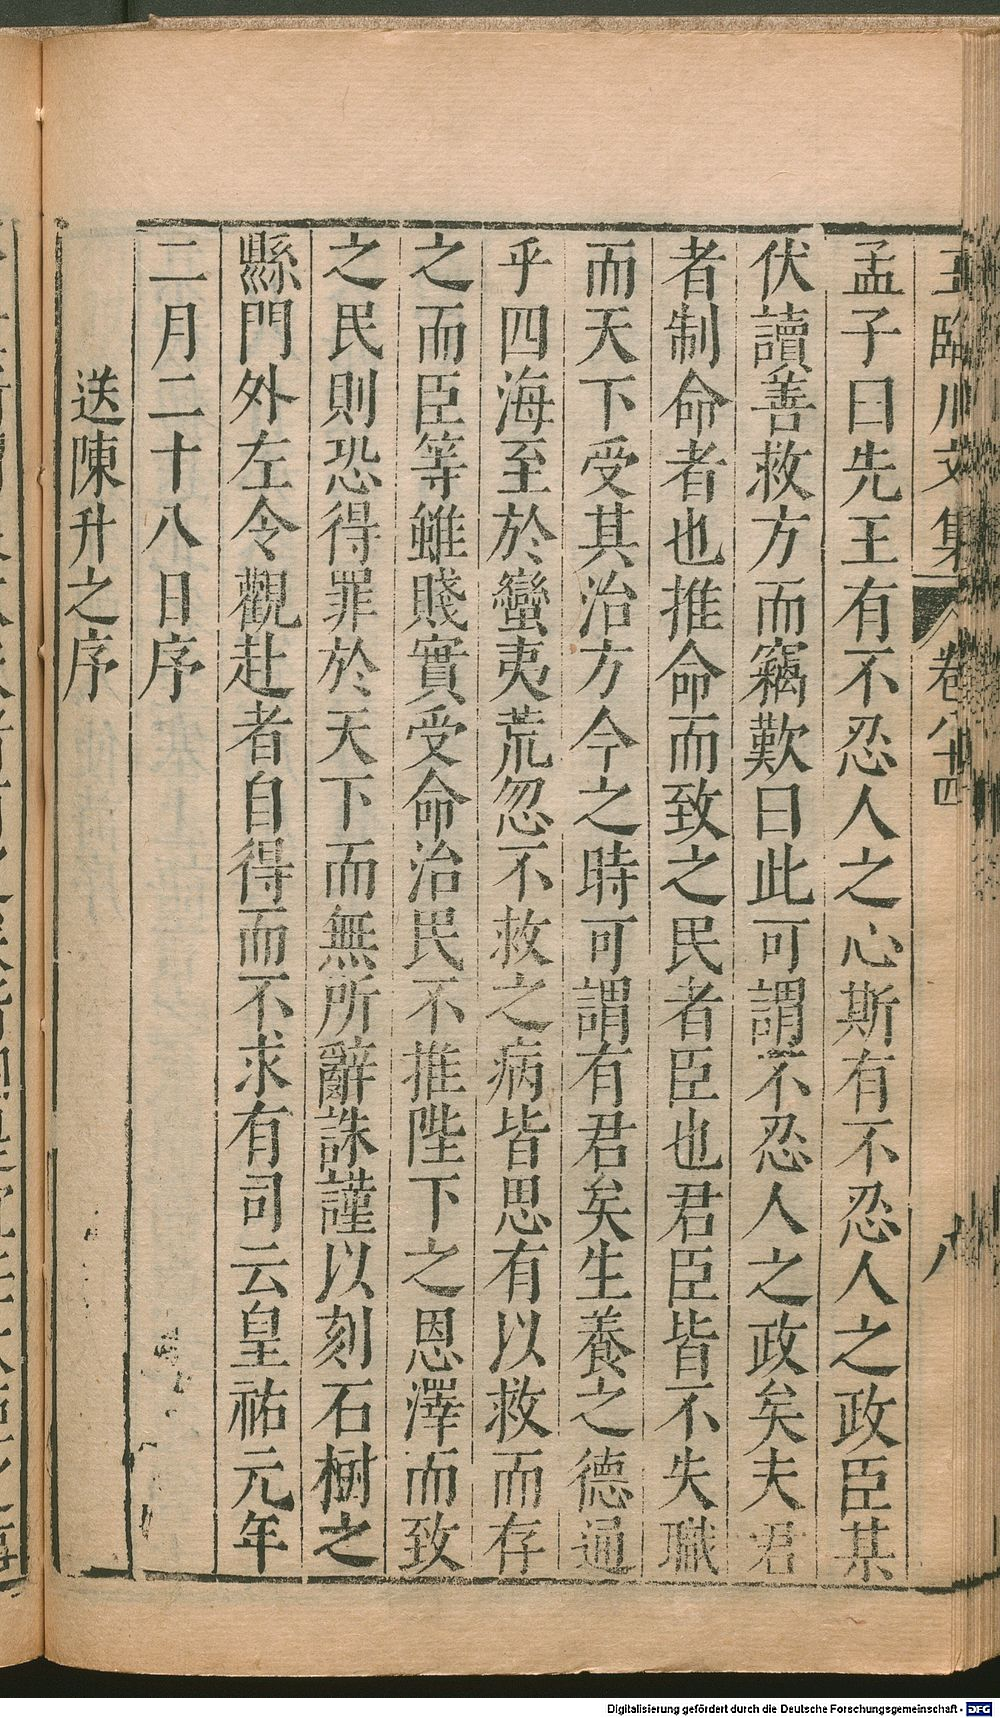 王臨川文集 卷八十四 八
孟子曰先王有不忍人之心斯有不忍人之政臣某
伏讀善救方而竊歎曰此可謂不忍人之政矣夫君
者制命者也推命而致之民者臣也君臣皆不失職
而天下受其治方今之時可謂有君矣生養之德通
乎四海至於蠻夷荒忽不救之病皆思有以救而存
之而臣等雖賤實受命治民不推陛下之恩澤而致
之民則恐得罪於天下而無所辭誅謹以刻石樹之
縣門外左令觀赴者自得而不求有司云皇祐元年
二月二十八日序
送陳升之序
Digitalisierung gefördert durch die Deutsche Forschungsgemeinschaft - DFG